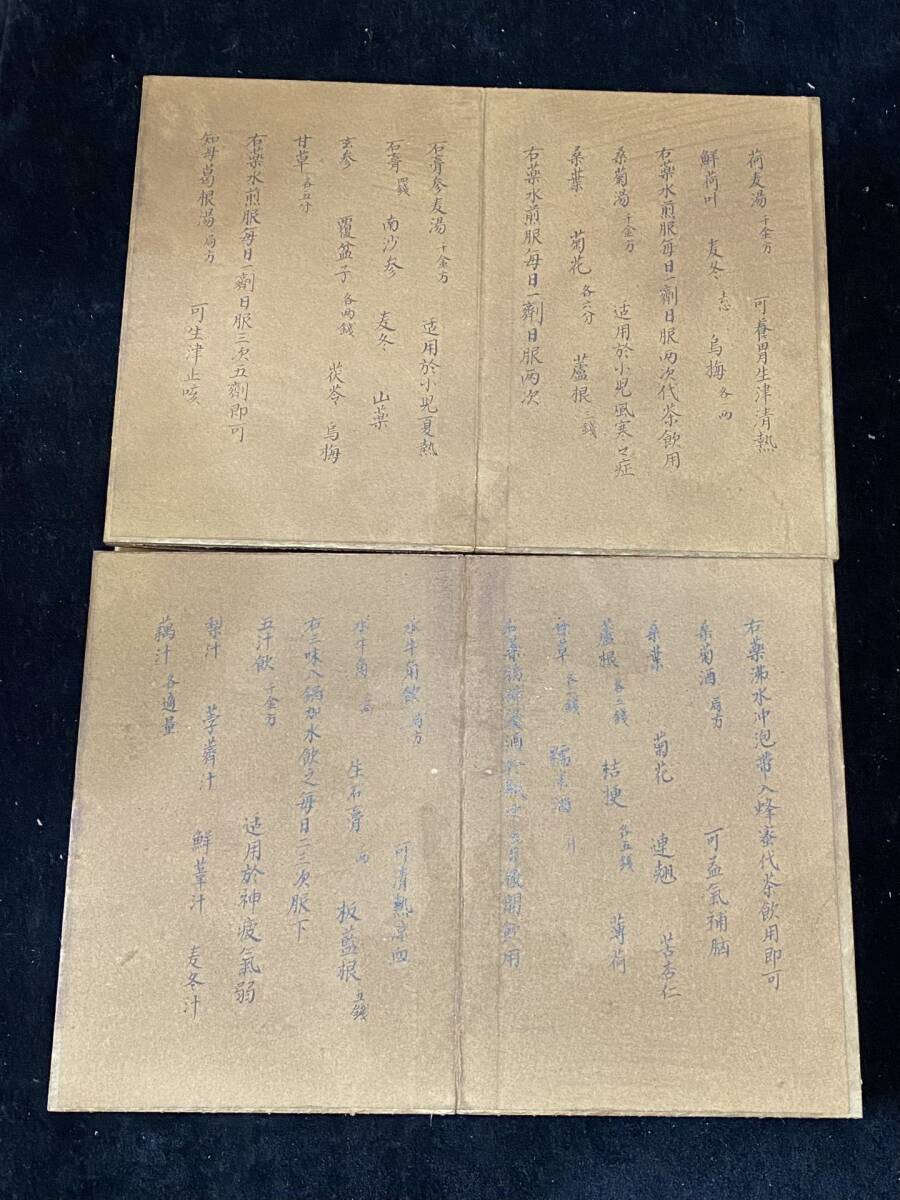 荷麦湯 千金方 可養胃生津清熱
鮮荷叶 麦冬 烏梅 各 两
右薬水煎服每日一劑日服两次代茶飲用
桑菊湯 千金方 适用於小児風寒之症
桑葉 菊花 各六分 蘆根 三錢
右薬水煎服每日一劑日服两次
石膏参麦湯 千金方 适用於小児夏熱
石膏 南沙参 麦冬 山薬
玄参 覆盆子 各两錢 茯苓 烏梅
甘草 各五分
右薬水煎服每日一劑日服三次五劑即可
知母葛根湯 局方 可生津止咳
右薬沸水冲泡带入蜂蜜代茶飲用即可
桑菊酒 局方 可益氣補脑
桑葉 菊花 連翘 苦杏仁
蘆根 各三錢 桔梗 各五錢 薄荷
甘草 糯米酒
右薬 酒 後開飲用
水牛角飲 局方 可清熱凉血
水牛角 生石膏 两 板藍根 五錢
右三味入鍋加水飲之每日二三次服下
五汁飲 千金方 适用於神疲氣弱
梨汁 荸薺汁 鮮葦汁 麦冬汁
藕汁 各適量